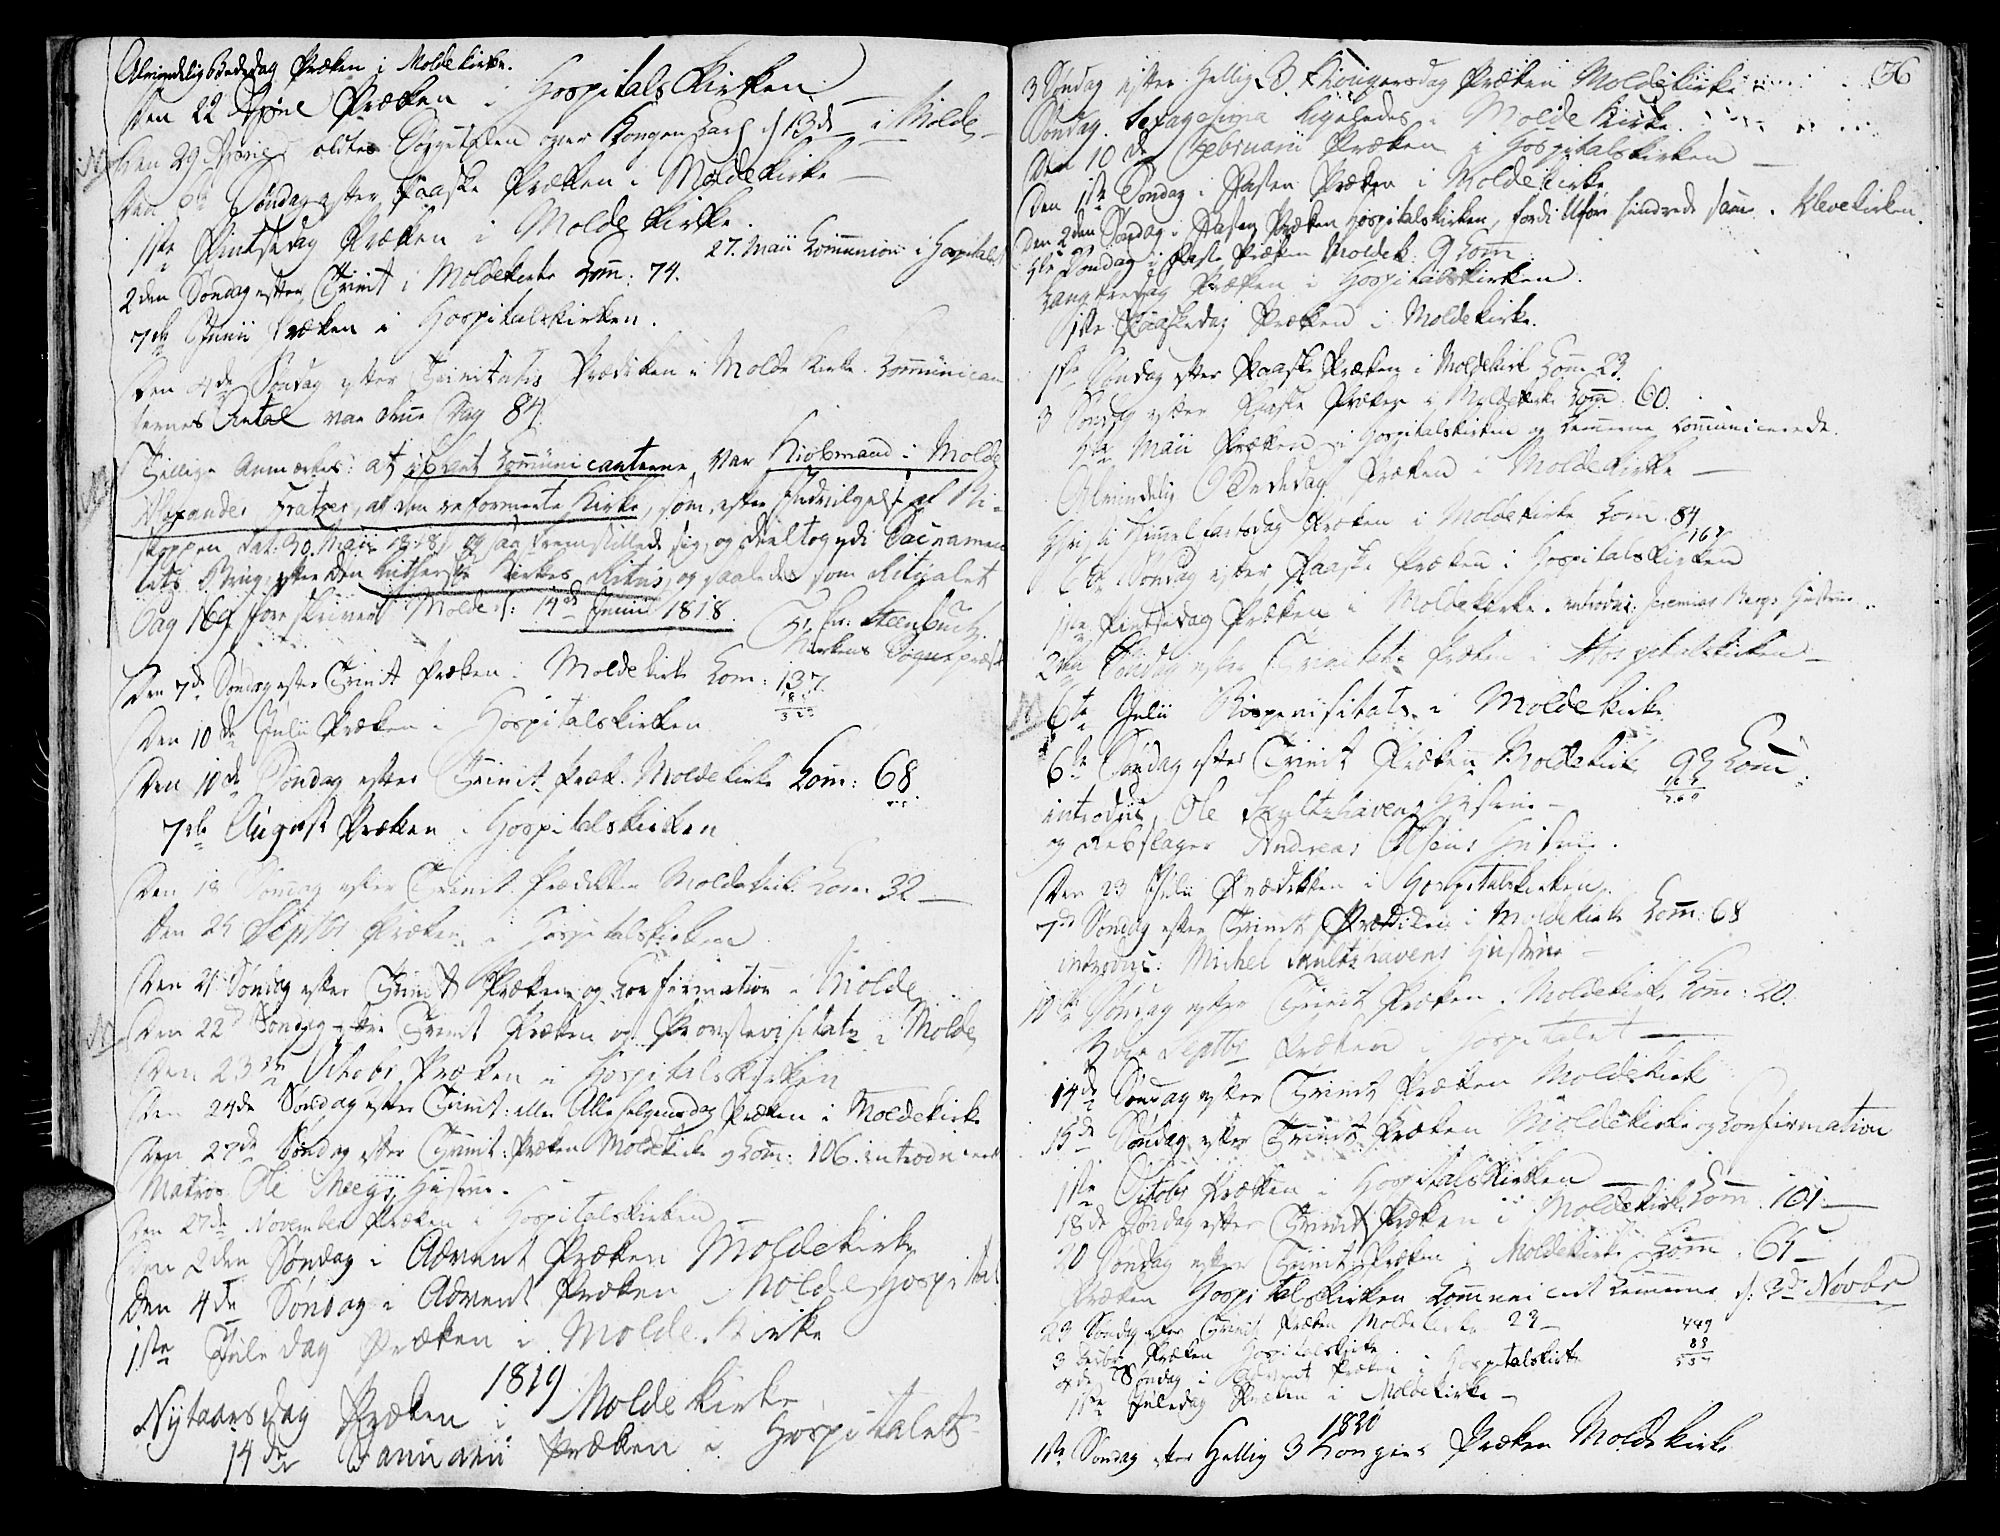 Almindelig Bededag Præken i Molde Kirke.
Den 22 April Præken i Hospitals Kirken
Den 29 April holdtes Sørgetalen over Kong Carl d 13de i Molde
Den 6te Søndag efter Paaske Præken i Molde Kirke
1ste Pintsedag Præken i Molde Kirke.
27. Maii Communion i Hospitalet
2den Søndag efter Trinit i Moldekirke Com: 74.
7de Junii Præken i Hospitalskirken.
Den 4de Søndag efter Trinitatis Prædiken i Molde Kirke. Communican
ternes Antal var denne Dag 84.
Tillige anmærkes: at iblant Communicanterne, var Kiøbmand i Molde
Alexander, af den reformeerte Kirke, som, efter Indvilgelse af Bi-
skoppen dat: 30 Maii 1818, fremstillede sig, og deeltog i Sacramen
tets Brug efter den Lutherske Kirkes Ritus, og saaledes som Ritualet
Pag 169 foreskriver. Molde d: 14de Junii 1818.
Steenbuch
Sognepræst
Den 7de Søndag efter Trinit Præken i Moldekirke Com: 137.
Den 10de Julii Præken i Hospitalskirken
Den 10de Søndag efter Trinit. Præk. Moldekirke Com: 68
7de August Præken i Hospitalskirken
Den 18 Søndag efter Trinit. Prædiken Moldekirke Com 32
Den 25 Septbr Præken i Hospitalskirken
Den 21 Søndag efter Trinit Præken og Confirmation i Molde
Den 22de Søndag efter Trinit Præken og Provstevisitatz i Molde
Den 23de Octobr Præken i Hospitalskirken
Den 24de Søndag efter Trinit: eller Alle helgensdag Præken i Moldekirke
Den 27de Søndag efter Trinit: Præken Moldekirke Com: 106. introduceret
Matros Ole Hustrue.
Den 27de November Præken i Hospitalskirken
Den 2den Søndag i Advent Præken Moldekirke
Den 4de Søndag i Advent Præken i Molde Hospital
1ste Juledag Præken i Molde Kirke
1819
Nytaarsdag Præken i Molde Kirke
14de Januarii Præken i Hospitalet
36
3 Søndag efter Hellig 3 Kongersdag Præken Moldekirke
Søndag Sexagesima ligeledes i Molde Kirke
Den 10de Februarii Præken i Hospitalskirken
Den 1ste Søndag i Fasten Præken i Moldekirke
Den 2den Søndag i Fasten Præken Hospitalskirken, fordi Uføre hindrede i Klevekirken.
Søndag i Faste Præken Moldek. 9 Com
Langfredag Præken i Hospitalskirken.
1ste Paaskedag Præken i Moldekirke.
1ste Søndag efter Paaske Præken i Moldekirk Com 23.
3 Søndag efter Paaske Præken i Moldekirke Com. 60.
Maii Præken i Hospitalskirken og Lemmerne communicerede.
Almindelig Bededag Præken i Moldekirke
Christi Himmelfartsdag Præken i Moldekirke Com. 84
167
6te Søndag efter Paaske Præken i Hospitalskirken
1ste Pintsedag Præken i Moldekirke. introduc: Jeremias Bergs Hustrue
2den Søndag efter Trinitatis Præken i Hospitalskirken
6te Julii Bispevisitats i Moldekirke
6te Søndag efter Trinit Præken Moldekirke 93 Com:
introduc. Ole Hustrue
og Rebslager Andreas Olsens Hustrue.
Den 23 Julii Prædiken i Hospitalskirken.
7de Søndag efter Trinit Prædiken i Moldekirke Com: 68
introduc: Michel Hustrue
10de Søndag efter Trinit Præken i Moldekirke Com: 20.
3die Septbr Præken i Hospitalet
14de Søndag efter Trinit Præken Moldekirke
15de Søndag efter Trinit Præken Moldekirke og Confirmation
1ste Octobr Præken i Hospitalskirken
18de Søndag efter Trinit Præken i Moldekirke Com 101
20 Søndag efter Trinit Præken i Moldekirke Com. 65
Præken Hospitalskirken Lemmerne d. 3de Novbr
23 Søndag efter Trinit Præken Moldekirke 23
449
3 Decbr Præken Hospitalskirke
4de Søndag i Advent Præken i Hospitalskirke
1ste Juledag Præken i Moldekirke
1820
1ste Søndag efter Hellig 3 Konger Præken Moldekirke